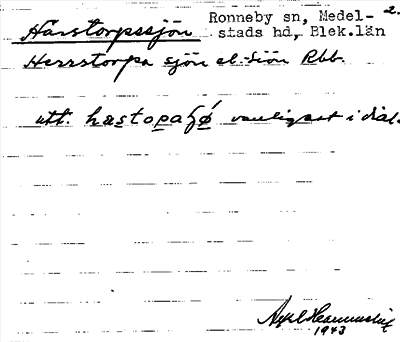 Harstorpssjön Ronneby sn, Medel- 2.
stads hd, Blek.län
Herrstorpa sjön el. Siön Rbb.
utt. hastopaʃø vanligast i dial.
Axel
1943